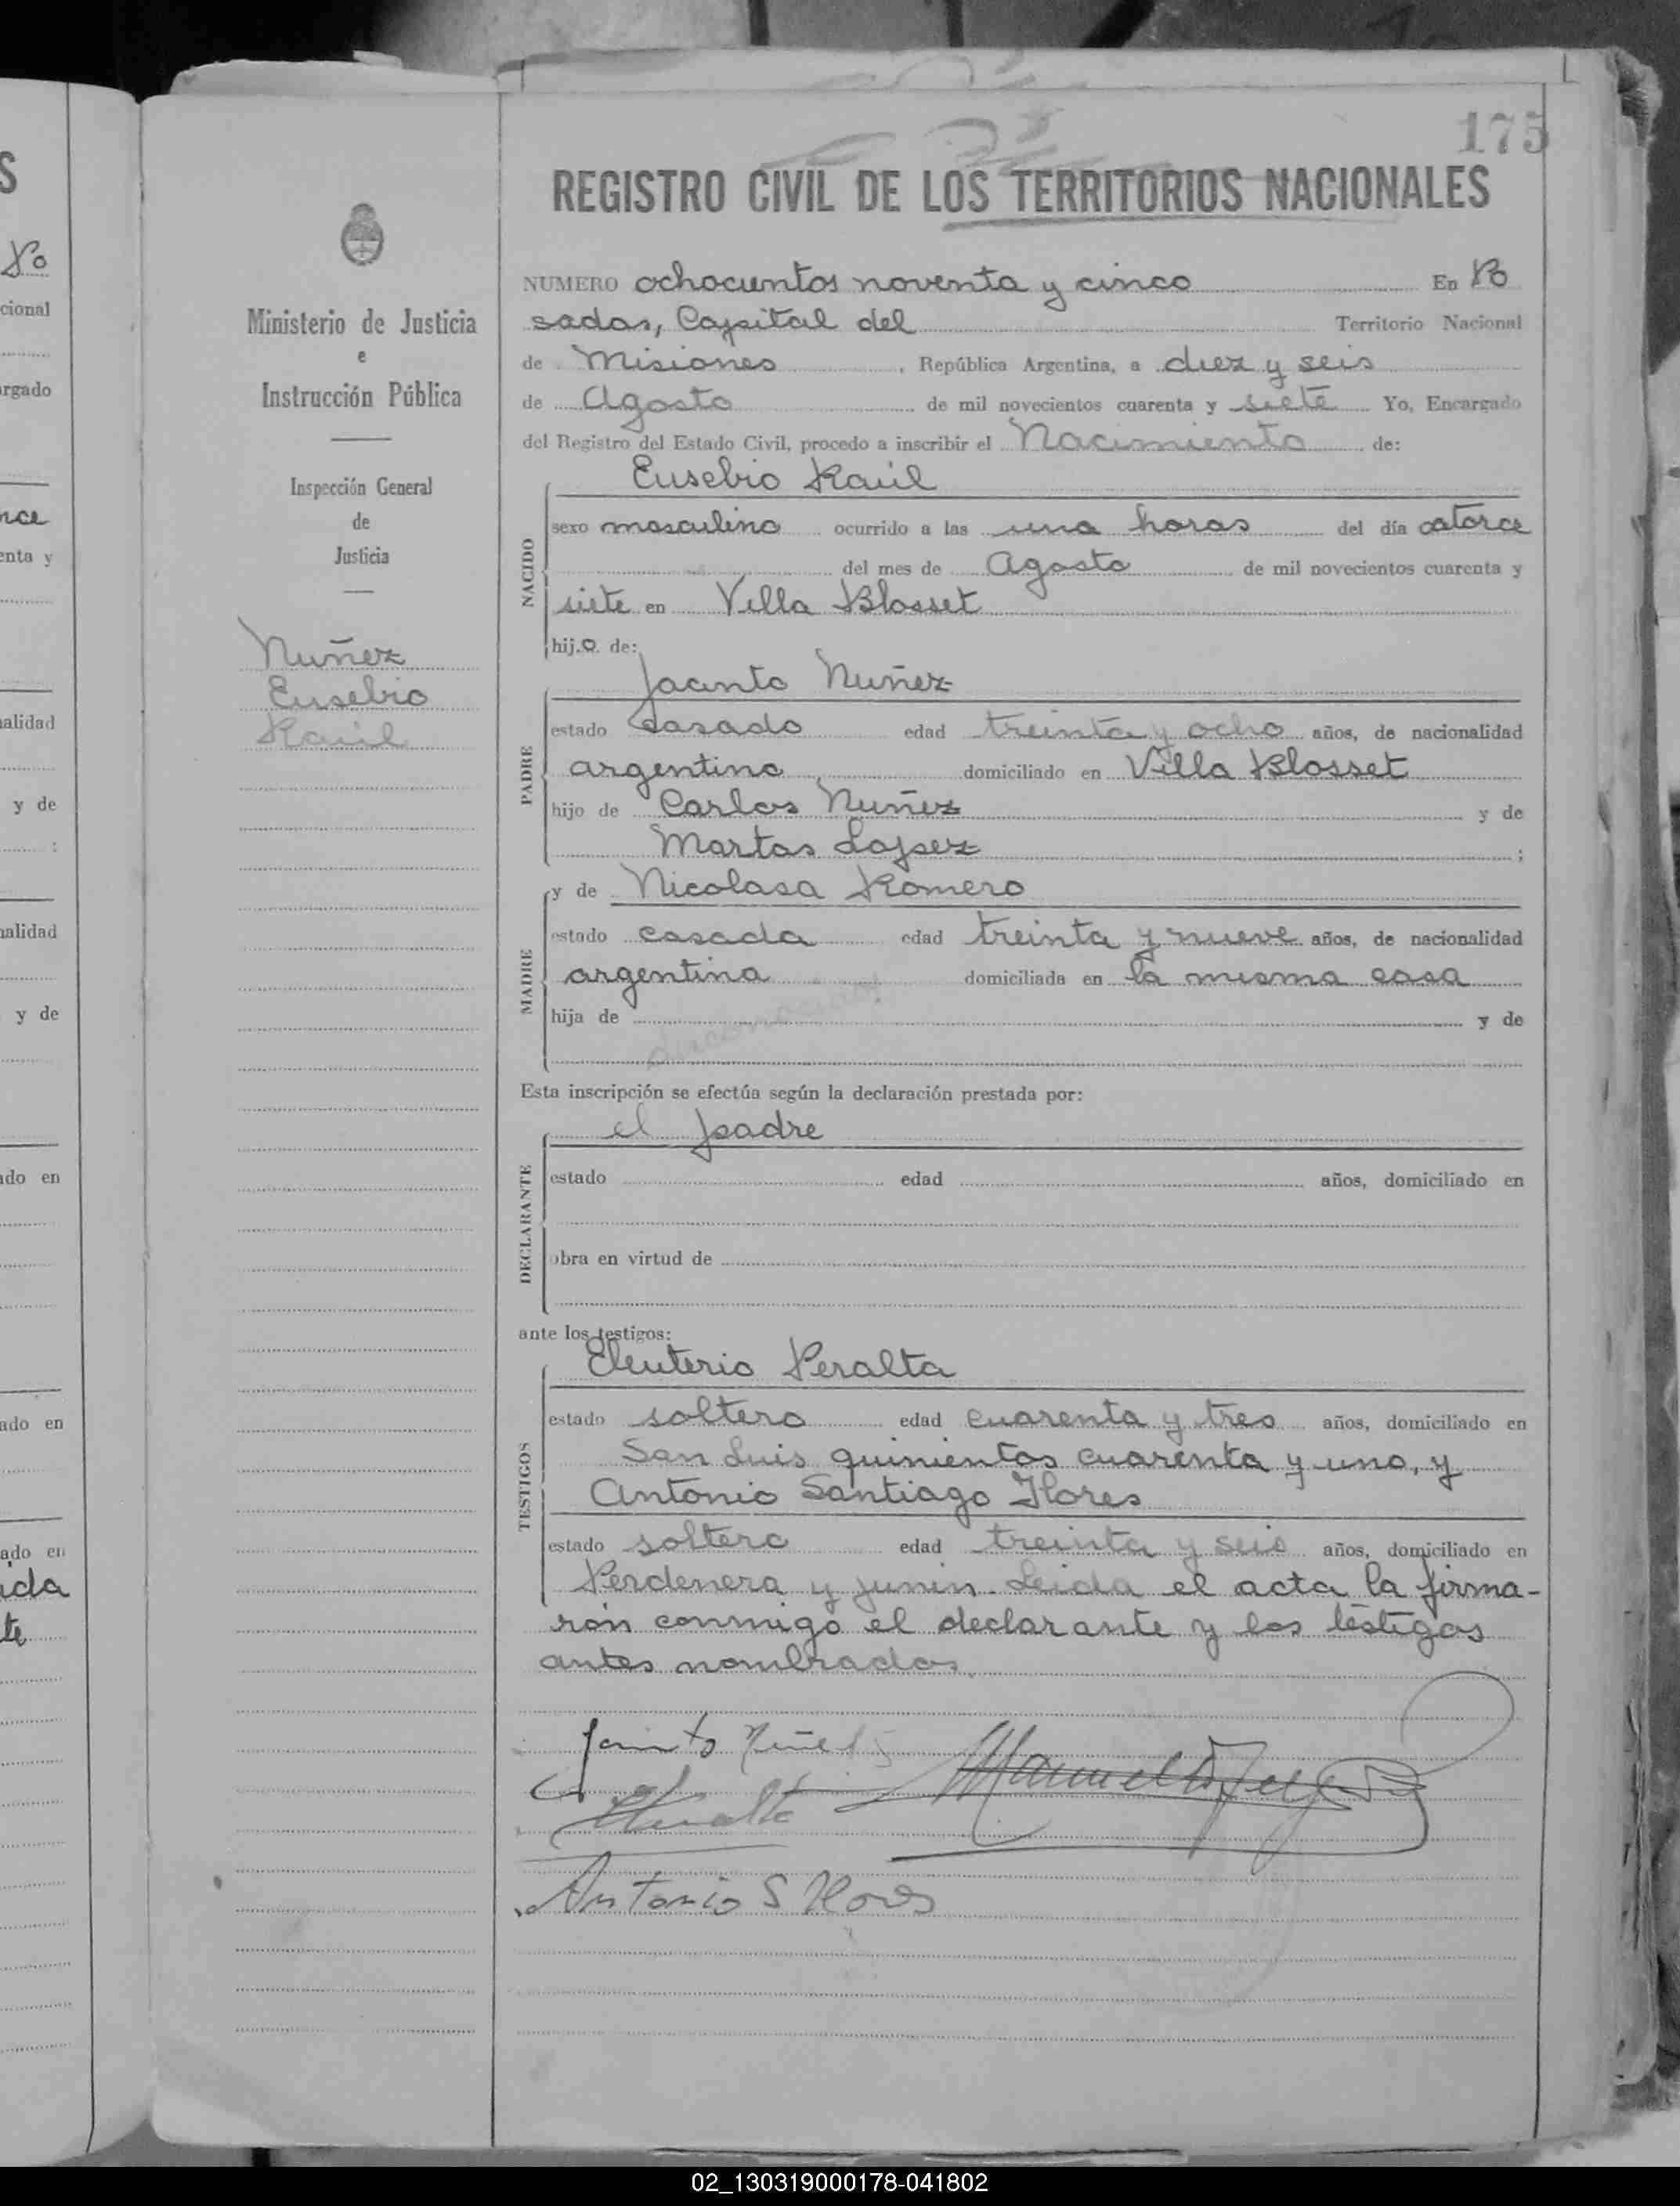 175
REGISTRO CIVIL DE LOS TERRITORIOS NACIONALES
Ministerio de Justicia
e
Instrucción Pública
Inspección General
de
Justicia
Nuñez
Eusebio
Raúl
NUMERO ochocientos noventa y cinco En Po
sadas, Capital del Territorio Nacional
de Misiones, República Argentina, a diez y seis
de Agosto de mil novecientos cuarenta y siete Yo, Encargado
del Registro del Estado Civil, procedo a inscribir el Nacimiento de:
Eusebio Raúl
NACIDO
sexo masculino ocurrido a las una horas del día catorce
del mes de Agosto de mil novecientos cuarenta y
siete en Villa Blosset
hij.o. de:
Jacinto Nuñez
PADRE
estado casado edad treinta y ocho años, de nacionalidad
argentino domiciliado en Villa Blosset
hijo de Carlos Nuñez y de
Martas Lopez ;
y de Nicolasa Romero
MADRE
estado casada edad treinta y nueve años, de nacionalidad
argentina domiciliada en la misma casa
hija de y de
Esta inscripción se efectúa según la declaración prestada por:
el padre
DECLARANTE
estado edad años, domiciliado en
obra en virtud de
ante los testigos:
Eleuterio Peralta
TESTIGOS
estado soltero edad cuarenta y tres años, domiciliado en
San Luis quinientos cuarenta y uno, y
Antonio Santiago Flores
estado soltero edad treinta y seis años, domiciliado en
Perdenera y Junin. Leida el acta la firma-
rón conmigo el declarante y los testigos
antes nombrados.
Jacinto Nuñez
Antonio S Flores
02_130319000178-041802